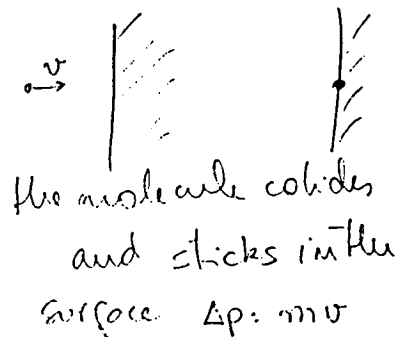 v
the molecule collides
and sticks in the
surface Δp: mv